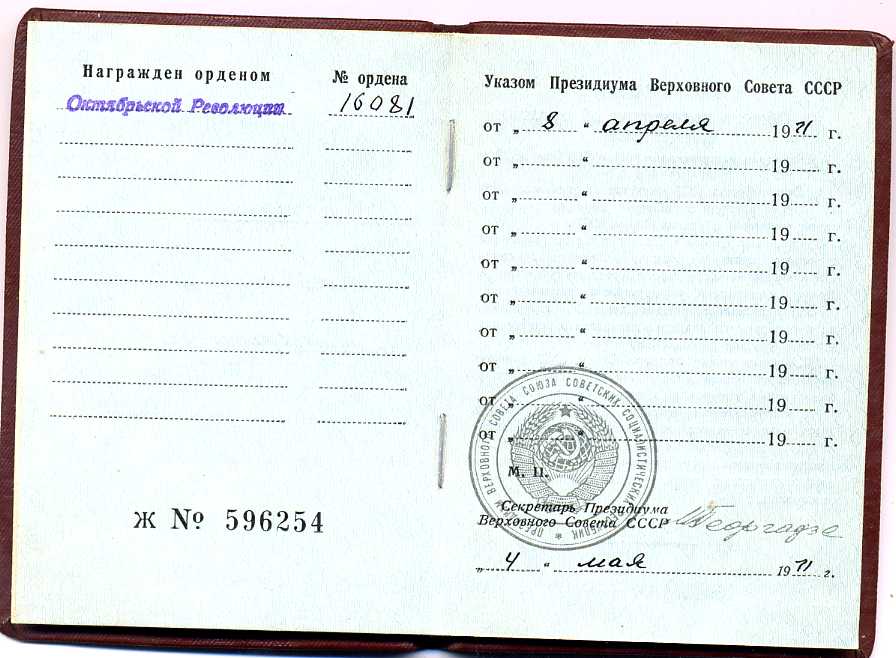 Награжден орденом
№ ордена
Октябрьской Революции
16081
Ж № 596254
Указом Президиума Верховного Совета СССР
от „ 8 “ апреля 1971 г.
от „ “ 19 г.
от „ “ 19 г.
от „ “ 19 г.
от „ “ 19 г.
от „ “ 19 г.
от „ “ 19 г.
от „ “ 19 г.
от „ “ 19 г.
от „ “ 19 г.
ПРЕЗИДИУМ ВЕРХОВНОГО СОВЕТА СОЮЗА СОВЕТСКИХ СОЦИАЛИСТИЧЕСКИХ РЕСПУБЛИК
М. П.
Секретарь Президиума
Верховного Совета СССР
МГеоргадзе
„ 4 “ мая 1971 г.